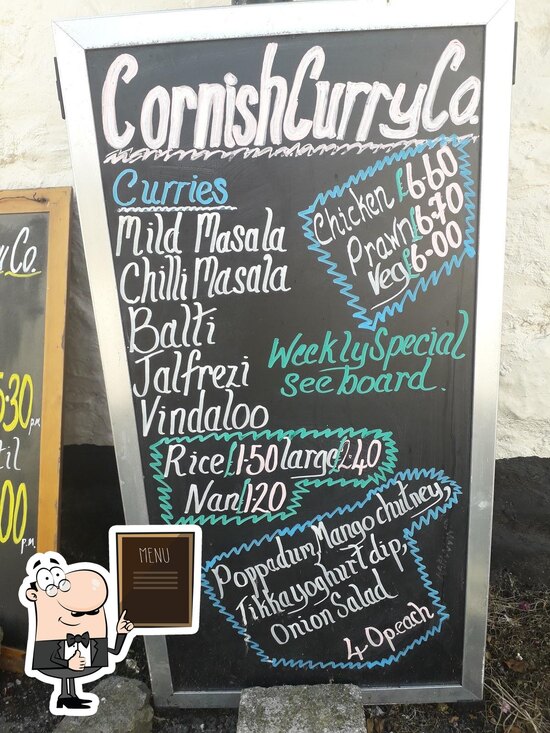 Cornish Curry Co.
Curries
Mild Masala
Chilli Masala
Balti
Jalfrezi
Vindaloo
Chicken £6.60
Prawn £6.70
Veg £6.00
Weekly Special
see board.
Rice £1.50 large £2.40
Nan 1.20
Poppadum, Mango chutney,
Tikka yoghurt dip,
Onion Salad
40p.each
y Co.
5:30
p.m
til
:00
p.m
MENU